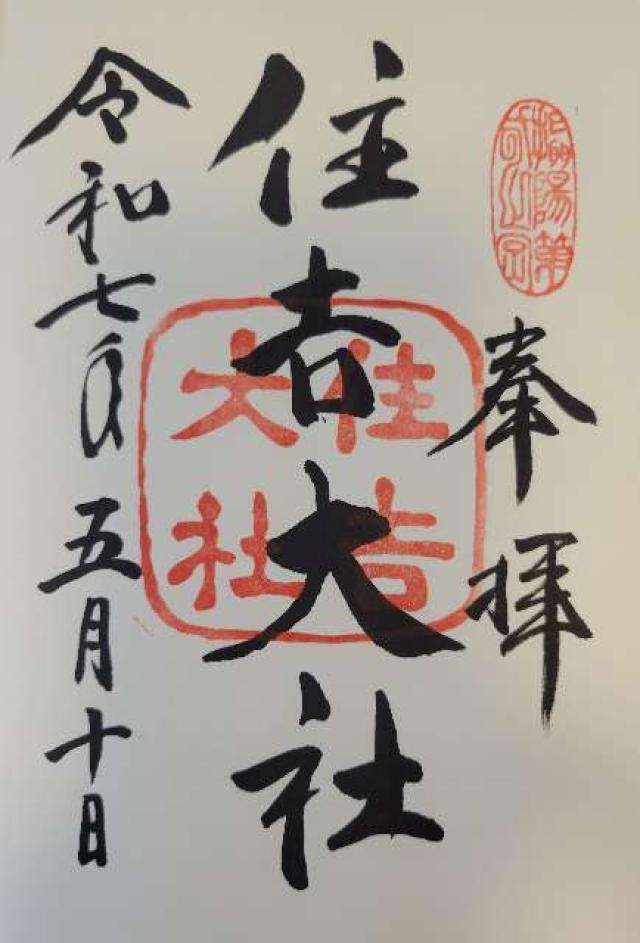 奉拝
住吉大社
住吉大社
令和七年五月十日